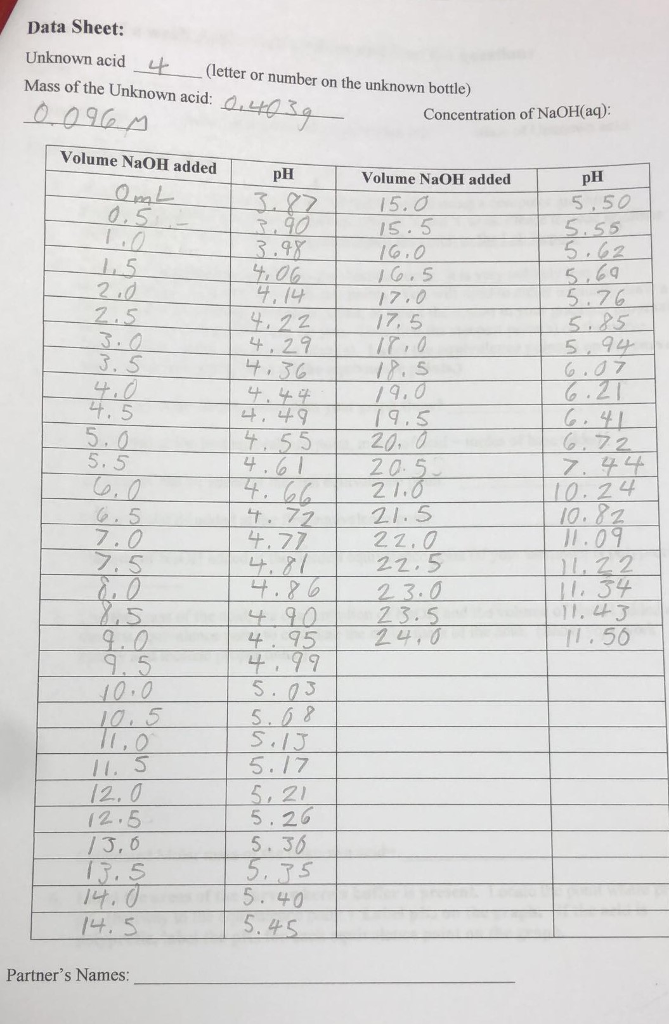 Data Sheet:
Unknown acid 4 (letter or number on the unknown bottle)
Mass of the Unknown acid: 0.403g Concentration of NaOH(aq):
0.096 M
Volume NaOH added pH Volume NaOH added pH
0mL 3.87 15.0 5.50
0.5 3.90 15.5 5.55
1.0 3.98 16.0 5.62
1.5 4.06 16.5 5.69
2.0 4.14 17.0 5.76
2.5 4.22 17.5 5.85
3.0 4.29 18.0 5.94
3.5 4.36 18.5 6.07
4.0 4.44 19.0 6.21
4.5 4.49 19.5 6.41
5.0 4.55 20.0 6.72
5.5 4.61 20.5 7.44
6.0 4.66 21.0 10.24
6.5 4.72 21.5 10.82
7.0 4.77 22.0 11.09
7.5 4.81 22.5 11.22
8.0 4.86 23.0 11.34
8.5 4.90 23.5 11.43
9.0 4.95 24.0 11.50
9.5 4.99
10.0 5.03
10.5 5.08
11.0 5.13
11.5 5.17
12.0 5.21
12.5 5.26
13.0 5.30
13.5 5.35
14.0 5.40
14.5 5.45
Partner's Names: